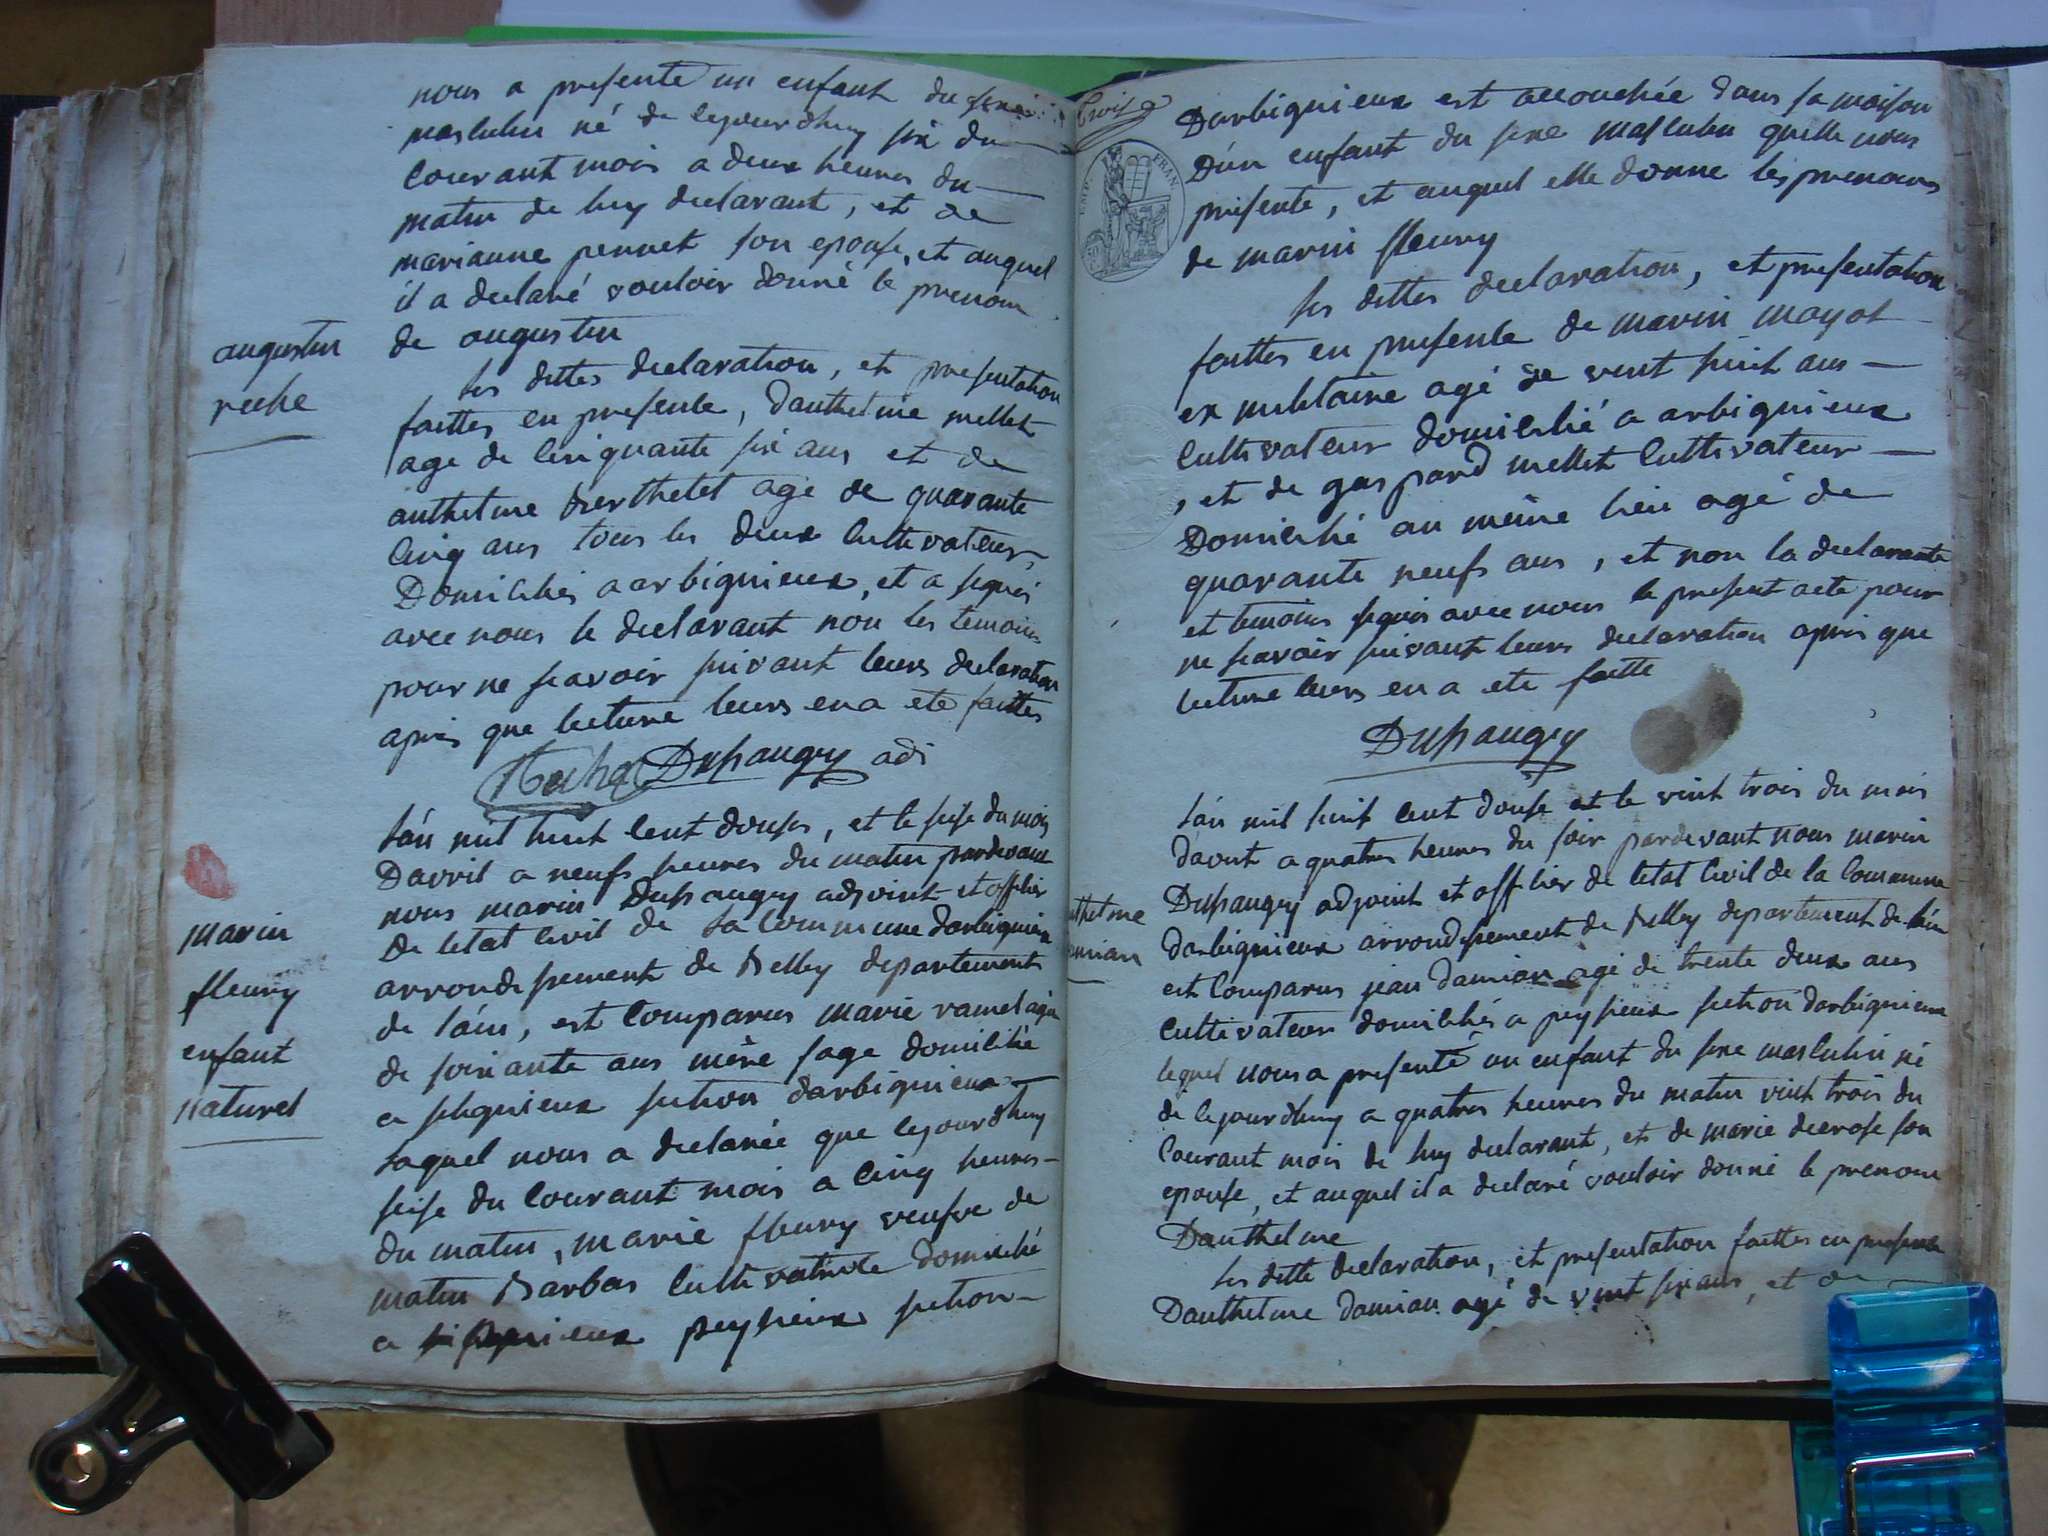 nous a presente un enfant du sexe
masculin né de cejourdhuy six du
courant mois a deux heures du
matin de luy declarant, et de
marianne pennet son epouse, et auquel
il a declaré vouloir donné le prenom
de augustin
augustin
reche
les dittes declaration, et presentation
faittes en presence, danthelme mellet
age de cinquante six ans et de
anthelme Berthelet age de quarante
cinq ans tous les deux cultivateur
Domiciliés a arbignieux, et a signé
avec nous le declarant non les temoins
pour ne scavoir suivant leurs declaration
apres que lecture leurs en a ete faittes
Dupaugey adj
lán mil huit cent douse, et le seise du mois
Davril a neufs heures du matin pardevant
nous marin Dupaugey adjoint et officier
De letat civil de la Commune darbignieux
arrondissement de Belley departement
de láin, est comparus marie ramel agée
de soixante ans mère sage domicilié
a slignieux section darbignieux
laquel nous a declarée que cejourdhuy
seise du courant mois a cinq heures
du matin, marie fleury veufve de
matin Barbas cultivatrice domicilié
a peysieux section
marin
fleury
enfant
naturel
Darbignieux est accouchée dans sa maison
Dún enfant du sexe masculin quelle nous
presente, et auquel elle donne les prenoms
de marin fleury
les dittes declaration, et presentation
faittes en presence de marin mayot
ex militaire agé de vint huit ans
cultivateur domicilié a arbignieux
, et de gaspard mellet cultivateur
Domicilié au même lieu agé de
quarante neufs ans, et non la declarante
et temoins signés avec nous le present acte pour
ne scavoir suivant leurs declaration apres que
lecture leurs en a ete faitte
Dupaugey
lán mil huit cent douse et le vint trois du mois
davril a quatres heures du soir pardevant nous marin
Dupaugey adjoint et officier de letat civil de la Commune
darbignieux arrondissement de Belley departement de láin
est comparus jean damian agé de trente deux ans
cultivateur domiciliés a peysieux section darbignieux
lequel nous a presenté un enfant du sexe masculin né
de cejourdhuy a quatres heures du matin vint trois du
courant mois de luy declarant, et de marie decrose son
epouse, et auquel il a declaré vouloir donné le prenom
Danthelme
les ditte declaration, et presentation faittes en presence
Danthelme damian agé de vint six ans, et de